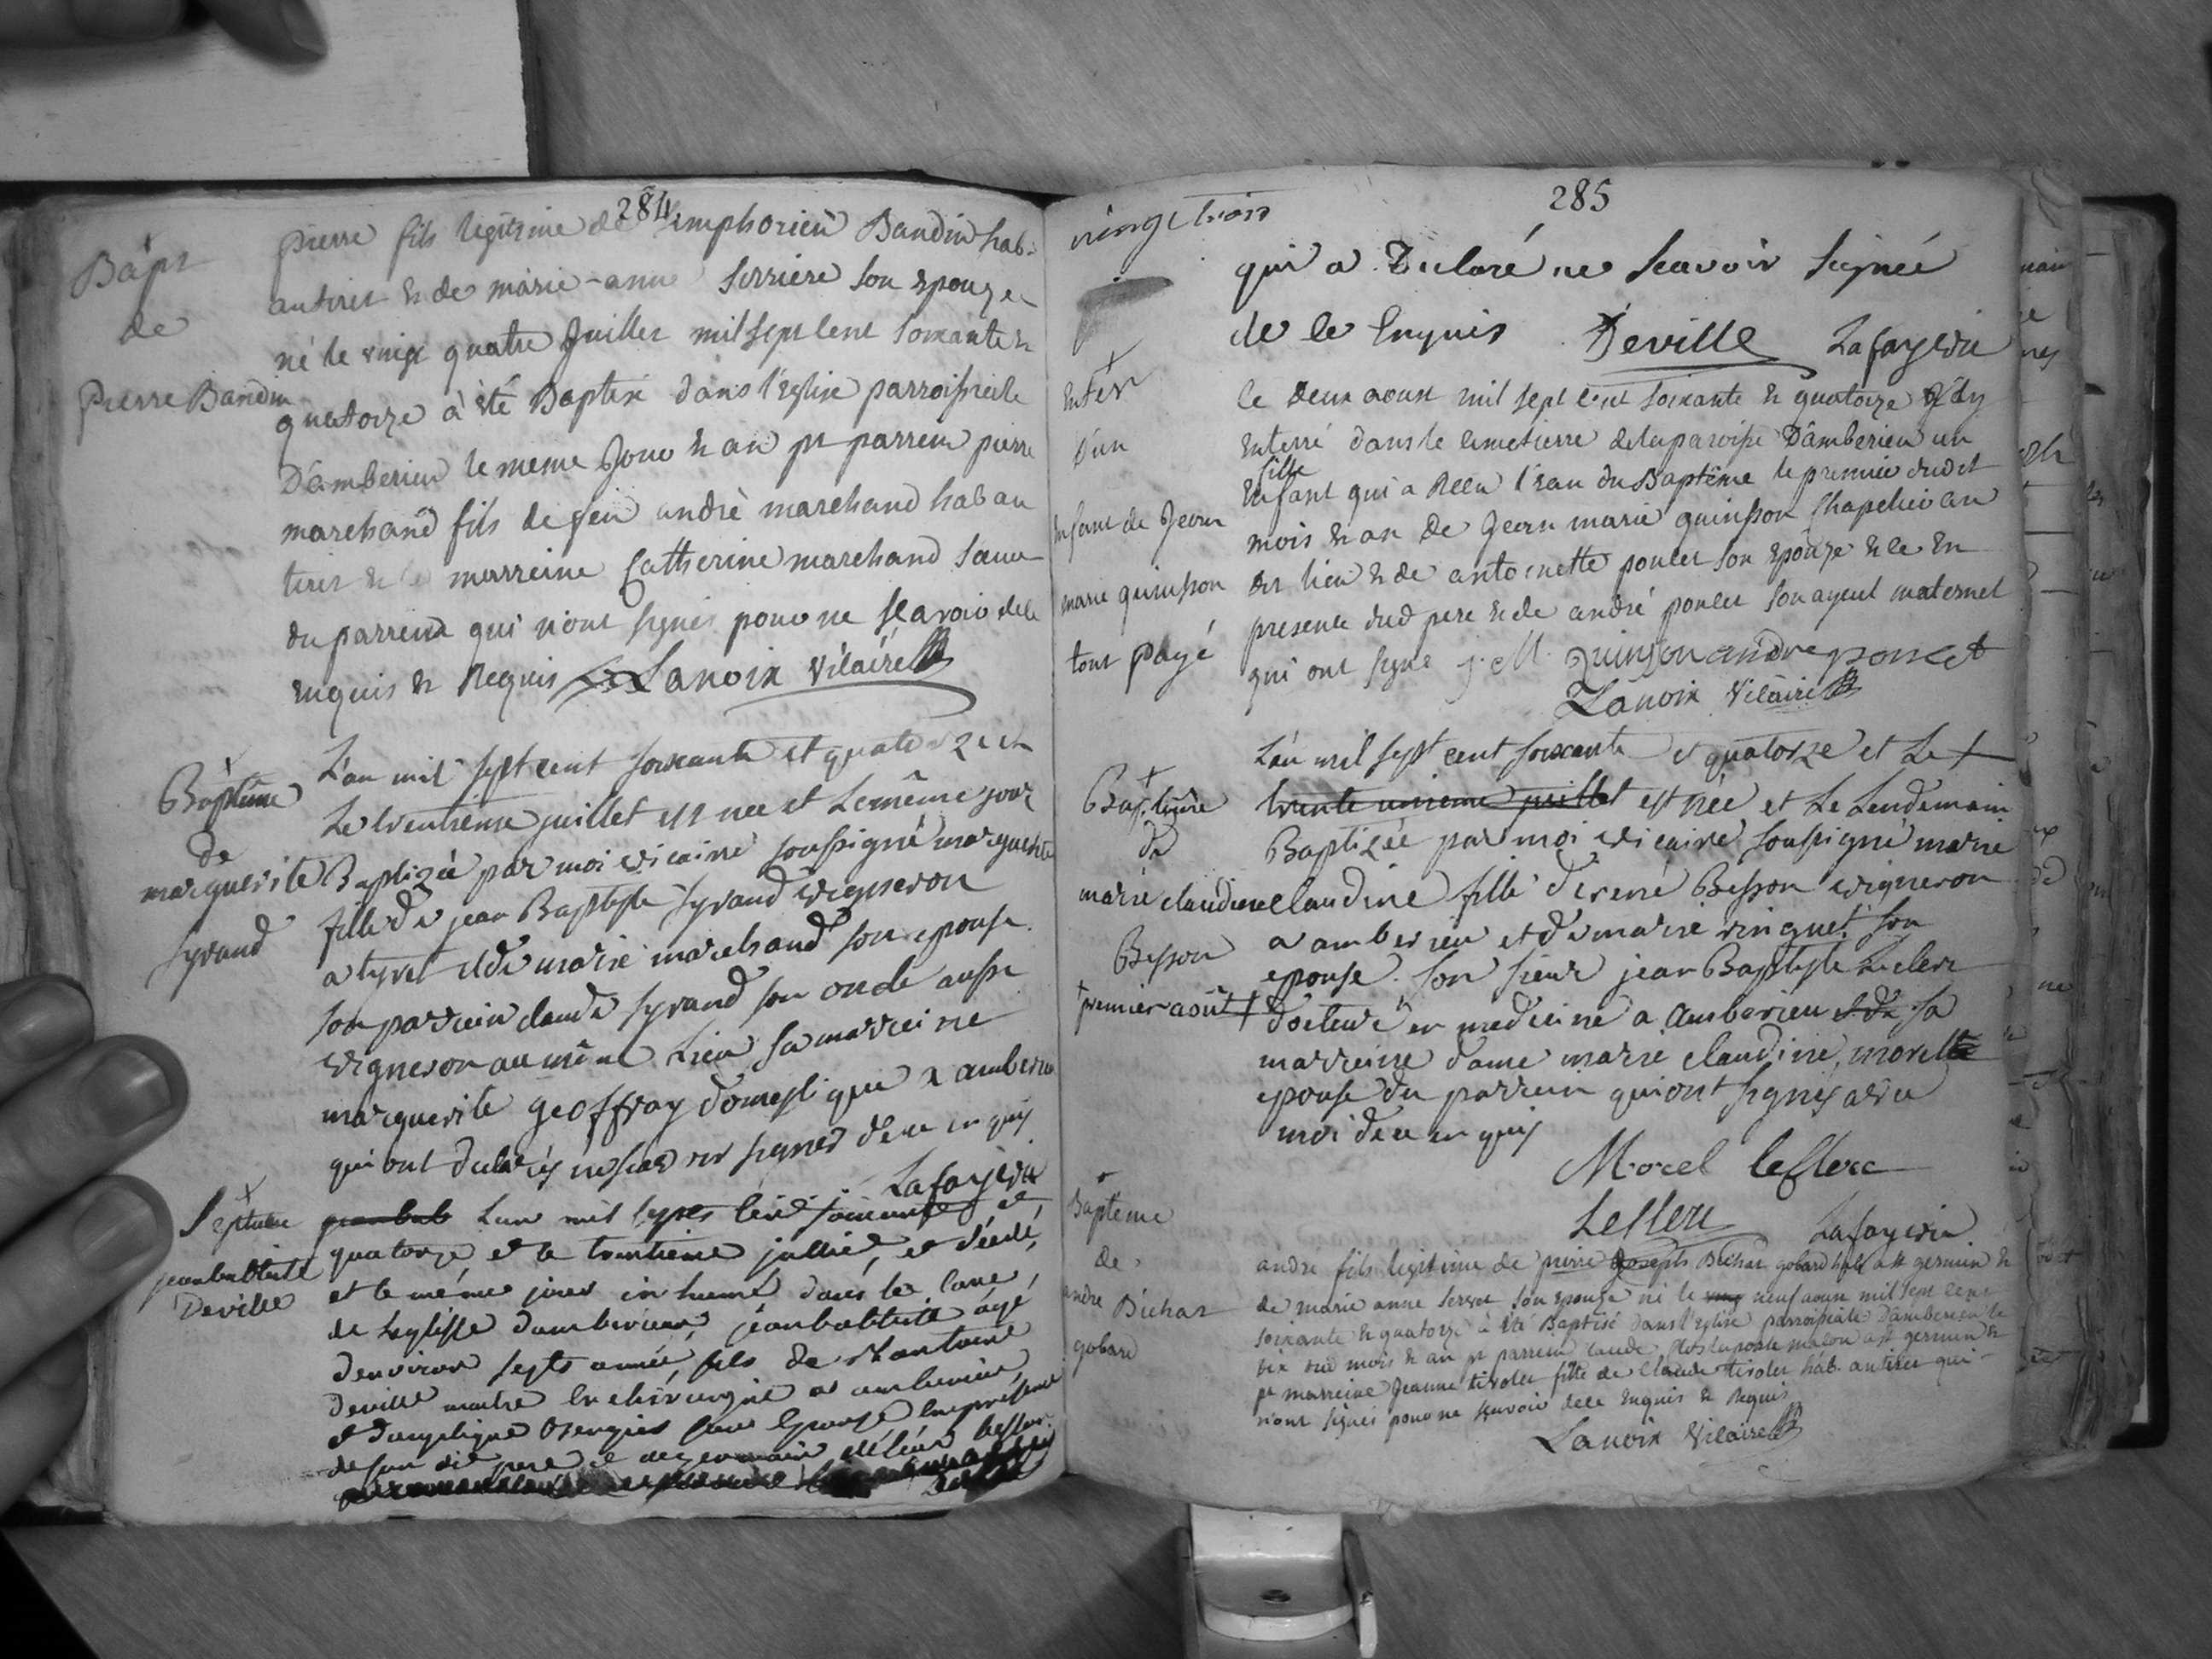 284
Bapt
de
Pierre Bandin
pierre fils legitime de simphorien Bandin hab.
autiret & de marie-anne serriere son epouze
né le vingt quatre Juillet mil sept cent soixante &
quatorze à été Baptisé dans l'Eglise parroissiale
D'amberieu le meme Jour & an pr parrein pierre
marchand fils de feu andrè marchand hab au
tiret & marreine Catherine marchand sœur
du parrein qui n'ont signés pour ne scavoir de le
enquis & Requis Lanoix Vicaire
Baptême
de
marguerite
syrand
L'an mil sept cent soixante et quatorze et
Le trentieme juillet est nee et Le même jour
Baptizée par moi vicaire soussigné marguerite
fille de jean Baptiste syrand vigneron
a tyret et de marie marchand son epouse.
son parrein claude syrand son oncle aussi
vigneron au même Lieu sa marreine
marguerite geoffray domestique a amberieu
qui ont declarés ne scavoir signer de ce enquis
Lafay vic
Septure
jeanbattiste
Deville
Lan mil sept cent soixante et
quatorze et le trentieme jullié, et décédé,
et le même jour inhumé dans la cave,
de Leglisse damberieux, jeanbattiste âgé
denviron septs année, fils de sr antoine
deville maitre en chirurgie a amberieu,
et dangelique son epouse en presence
de son dit pere et de
285
vingt trois
qui a Declaré ne scavoir signée
de le Enquis Deville Lafay vic
Enter
D'un
enfant de Jean
marie quinsson
tout payé
le deux aoust mil sept cent soixante & quatorze J'ay
enterré dans le cimetierre de la paroisse D'amberieu un
fille
Enfant qui a Recu l'eau du Baptême le premier dudit
mois & an de Jean marie quinsson Chapelier au
dt lieu & de antoinette poncet son epouze & ce en
presence dud pere & de andré poncet son ayeul maternel
qui ont signé j. M. quinson andre poncet
Lanoix Vicaire
Baptême
de
marie claudine
Besson
+premier août +
L'an mil sept cent soixante et quatorze et Le +
trente unieme juillet est née et Le Lendemain
Baptizée par moi vicaire soussigné marie
claudine fille de rené Besson vigneron
a amberieu et de marie vinquet son
epouse. son sieur jean Baptiste Leclerc
docteur en medecine a amberieu et de sa
marreine dame marie claudine morel
epouse du parrein qui ont signés avec
moi de ce enquis
Morel leclerc
Leclerc Lafay vic.
Baptême
de
andre Bichat
gobard
andre fils legitime de pierre joseph Bichat gobard hab a st germain &
de marie anne servet son epouze né le vingt neuf aoust mil sept cent
soixante & quatorze à été Baptisé dans l'eglise parroissiale D'amberieu le
dix dud mois & an pr parrein claude a st germain &
pr marreine Jeanne tirolet fille de Claude tirolet hab. autiret qui
n'ont signés pour ne scavoir de le Enquis & Requis
Lanoix Vicaire